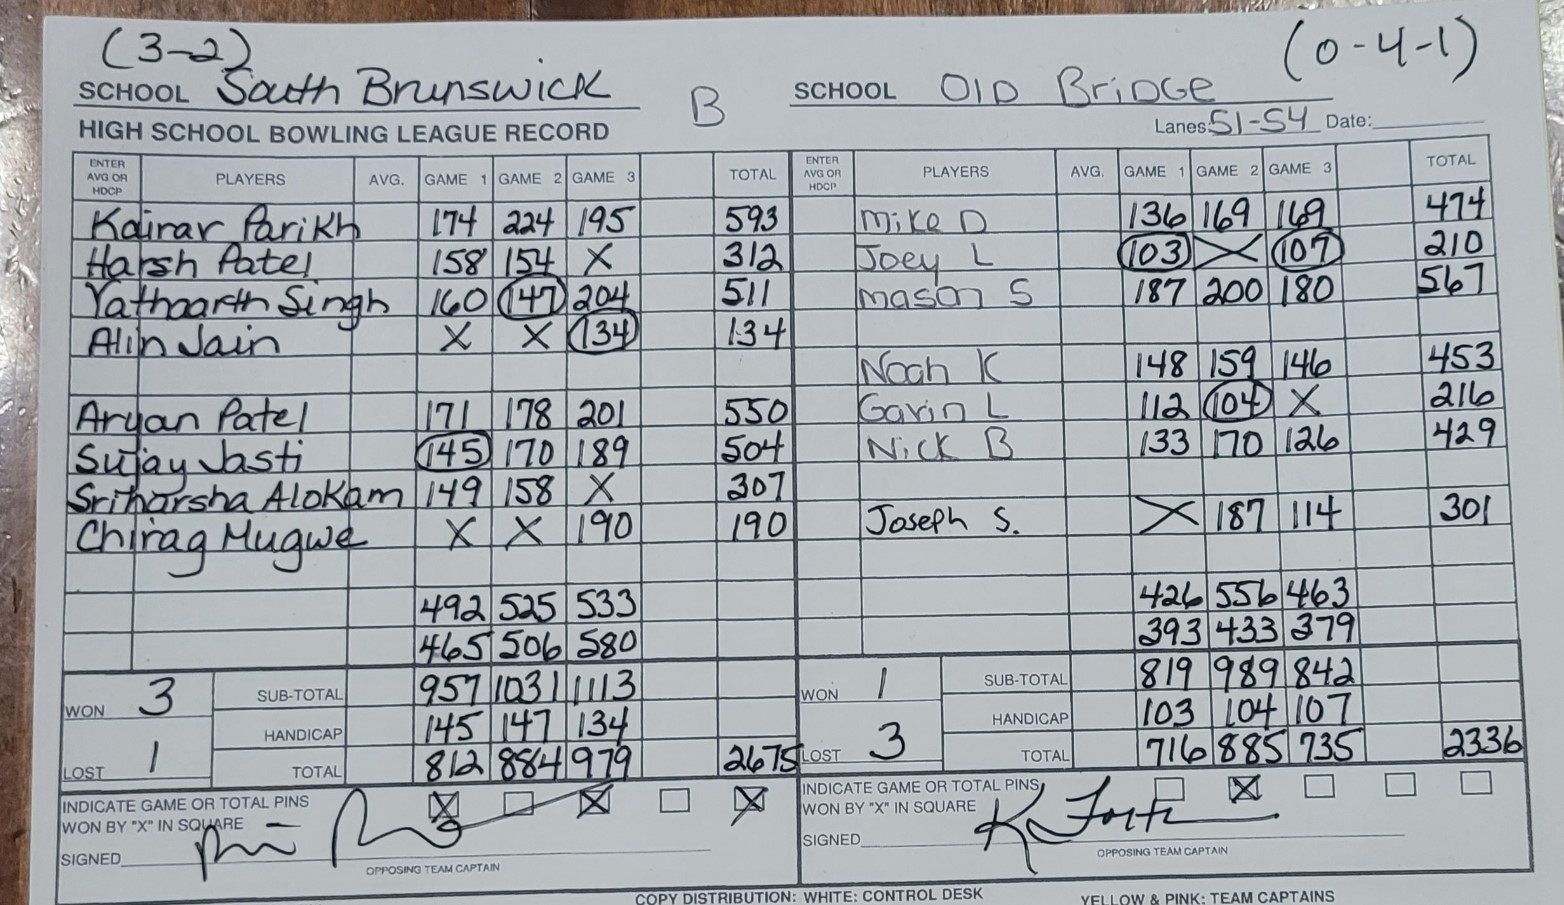 (3-2) (0-4-1)
SCHOOL South Brunswick B SCHOOL Old Bridge
HIGH SCHOOL BOWLING LEAGUE RECORD Lanes: 51-54 Date:
ENTER AVG OR HDCP PLAYERS AVG. GAME 1 GAME 2 GAME 3 TOTAL ENTER AVG OR HDCP PLAYERS AVG. GAME 1 GAME 2 GAME 3 TOTAL
Kairav Parikh 174 224 195 593 Mike D 136 169 169 474
Harsh Patel 158 154 X 312 Joey L 103 X 107 210
Yathaarth Singh 160 147 204 511 Mason S 187 200 180 567
Alin Jain X X 134 134
Noah K 148 159 146 453
Aryan Patel 171 178 201 550 Gavin L 112 104 X 216
Sujay Jasti 145 170 189 504 Nick B 133 170 126 429
Sriharsha Alokam 149 158 X 307
Chirag Mugwe X X 190 190 Joseph S. X 187 114 301
492 525 533 426 556 463
465 506 580 393 433 379
WON 3 SUB-TOTAL 957 1031 1113 WON 1 SUB-TOTAL 819 989 842
HANDICAP 145 147 134 HANDICAP 103 104 107
LOST 1 TOTAL 812 884 979 2675 LOST 3 TOTAL 716 885 735 2336
INDICATE GAME OR TOTAL PINS X X X INDICATE GAME OR TOTAL PINS X
WON BY "X" IN SQUARE WON BY "X" IN SQUARE
SIGNED SIGNED
OPPOSING TEAM CAPTAIN OPPOSING TEAM CAPTAIN
COPY DISTRIBUTION: WHITE: CONTROL DESK YELLOW & PINK: TEAM CAPTAINS